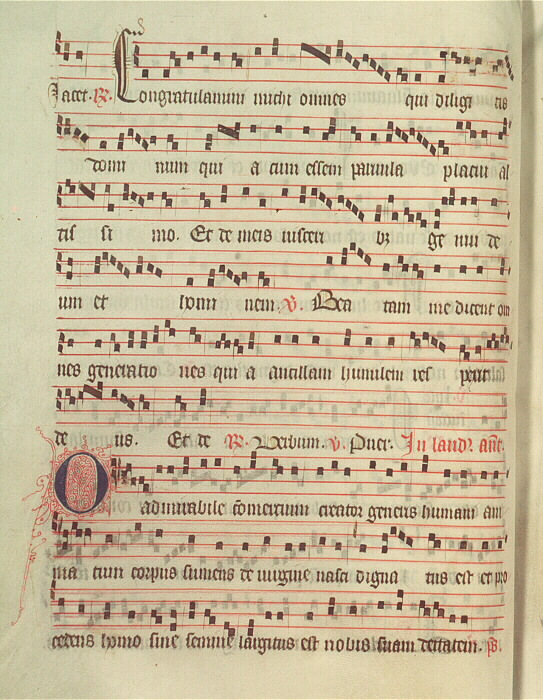 Jacet. R. Congratulamini michi omnes qui diligi tis
domi num qui a cum essem parvula placui al
tis si mo. Et de meis visceri bz ge nui de
um et homi nem. V. Bea tam me dicent om
nes generatio nes qui a ancillam humilem res pexit
de us. Et de R. Verbum. V. Puer. In laud. ant.
O admirabile comercium creator generis humani ani
ma tum corpus sumens de virgine nasci digna tus est et pro
cedens homo sine semine largitus est nobis suam deitatem. ps.